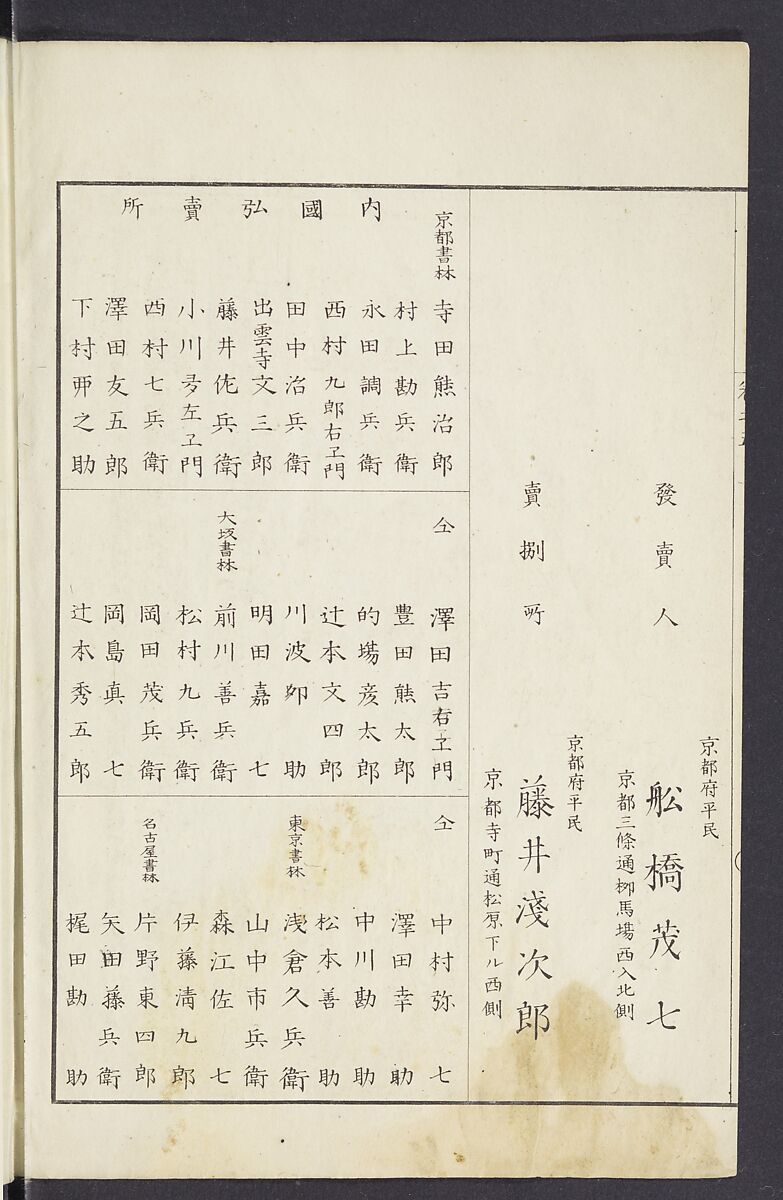 發賣人
京都府平民
京都三條通栁馬塲西入北側
舩橋茂七
賣捌所
京都府平民
京都寺町通松原下ル西側
藤井淺次郎
內國弘賣所
京都書林
寺田熊治郎
村上勘兵衛
永田調兵衛
西村九郎右ヱ門
田中治兵衛
出雲寺文三郎
藤井佐兵衛
小川多左ヱ門
西村七兵衛
澤田友五郎
下村西之助
仝
澤田吉右ヱ門
豊田熊太郎
的塲彦太郎
辻本文四郎
川波夘助
明田嘉七
大坂書林
前川善兵衛
松村九兵衛
岡田茂兵衛
岡島真七
辻本秀五郎
仝
中村弥七
澤田幸助
中川勘助
松本善助
東京書林
浅倉久兵衛
山中市兵衛
森江佐七
伊藤清九郎
名古屋書林
片野東四郎
矢田藤兵衛
梶田勘助